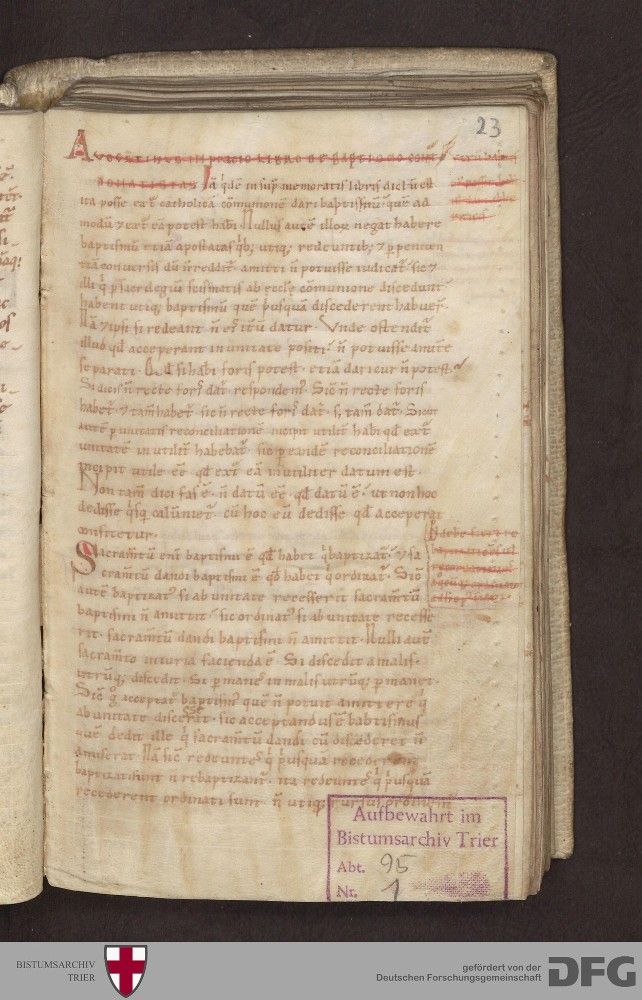 23
AVGVSTINVS IN PRIMO LIBRO DE BAPTISMO CONT
DONATISTAS Iā q̄dē in sup̄memoratis libris dictū est
ita posse ext̄ catholicā cōmunionē dari baptismū quē ad
modū ⁊ ext̄ eā potest habi. Nullus autē illoꝝ negat habere
baptismū etiā apostatas qͥb; utiq; redeuntib; ⁊ p peniten
tiā conuersis dū n̄ reddit̄ amitti n̄ potuisse iudicat̄. sic ⁊
illi q̄ p sacrilegiū scismatis ab eccłę cōmunione discedunt
habent utiq; baptismū quē pͥusquā discederent habuer̄.
Nā ⁊ ipsi si redeant n̄ eis itū datur. Vnde ostendit̄
illud qd̄ acceperant in unitate positi. n̄ potuisse amitte
separati. Qd̄ si habi foris potest. etiā dari cur n̄ potest.
Si dicis n̄ recte foris dat̄. respondem'. Sic n̄ recte foris
habet̄. ⁊ tam̄ habet̄. sic n̄ recte foris dat̄. s; tam̄ dat̄. Sicut
autē p unitatis reconciliationē incipit utilit̄ habi qd̄ ext̄
unitatē inutilit̄ habebat̄. sic p eandē reconciliationē
incipit utile ēē qd̄ ext̄ eā inutiliter datum est.
Non tam̄ dici fas ē. n̄ datū ēē qd̄ datū ē. ut non hoc
dedisse q̄sq; calūniet̄. cū hoc eū dedisse qd̄ acceperat
confitetur.
Sacram̄tū eni baptismi ē qd̄ habet qͥ baptizat̄. ⁊ sa
cram̄tū dandi baptismi ē qd̄ habet qͥ ordinat̄. Sic
autē baptizat' si ab unitate recesserit sacram̄tū
baptismi n̄ amittit. sic ordinat' si ab unitate recesse
rit. sacram̄tū dandi baptismi n̄ amittit. Nulli aut̄
sacram̄to iniuria facienda ē. Si discedit a malis.
utrūq; discedit. Si pmanet in malis utrūq; pmanet.
Sic g̊ acceptat̄ baptism' quē n̄ potuit amittere qͥ
ab unitate discesserat. sic acceptandus ē babtismus
quē dedit ille qͥ sacram̄tū dandi cū discederet n̄
amiserat. Nā sic redeuntes qͥ pͥusquā recederent
baptizati sunt n̄ rebaptizant̄. ita redeuntes qͥ pͥusquā
recederent ordinati sunt. n̄ utiq; rursus ordinant̄
Aufbewahrt im
Bistumsarchiv Trier
Abt. 95
Nr. 1
BISTUMSARCHIV
TRIER
gefördert von der
Deutschen Forschungsgemeinschaft
DFG